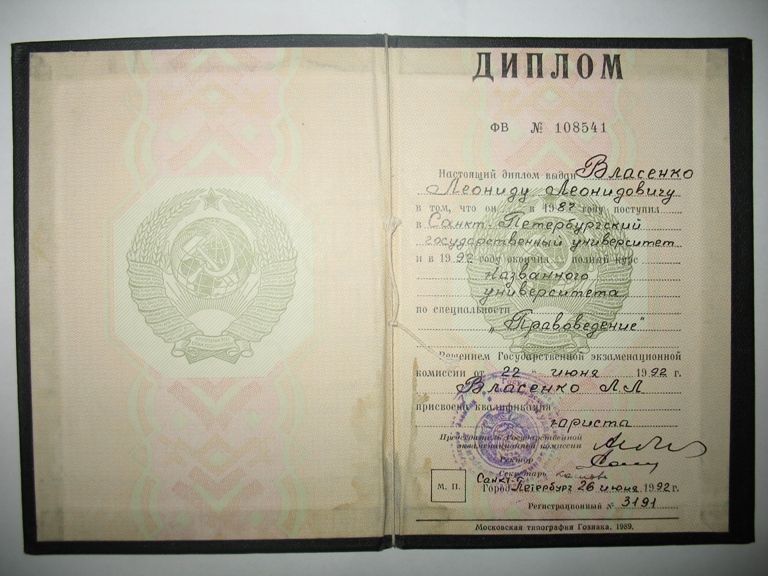 ДИПЛОМ
ФВ № 108541
Настоящий диплом выдан Власенко
Леониду Леонидовичу
в том, что он в 1987 году поступил
в Санкт-Петербургский
государственный университет
и в 1992 году окончил полный курс
названного
университета
по специальности
„Правоведение"
Решением Государственной экзаменационной
комиссии от 22 июня 1992 г.
Власенко Л Л
присвоена квалификация
юриста
Председатель Государственной
экзаменационной комиссии
Ректор
Секретарь
М. П.
Санкт-
Город Петербург 26 июня 1992 г.
Регистрационный № 3191
Московская типография Гознака, 1989.